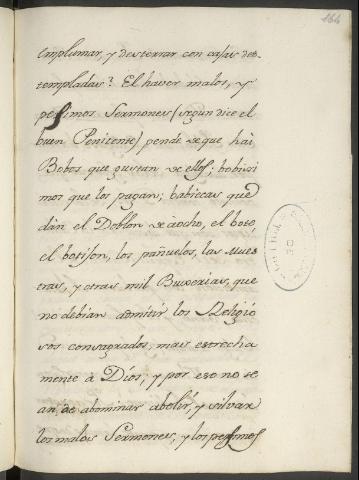 164
emplumar, y desterrar con cajas des-
templadas? El haver malos, y
pessimos Sermones (segun dice el
buen Penitente) pende de que hai
Bobos que gustan de ellos; bobisi
mos que los pagan; babiecas que
dàn el Doblon de àocho, el bote,
el botijon, los pañuelos, las Mues
tras, y otras mil Buxerias, que
no debian admitir los Religio
sos consagrados, mas estrecha
mente à Dios, y por eso no se
an de abominar abolir, y silvar
los malos Sermones, y los pessimos